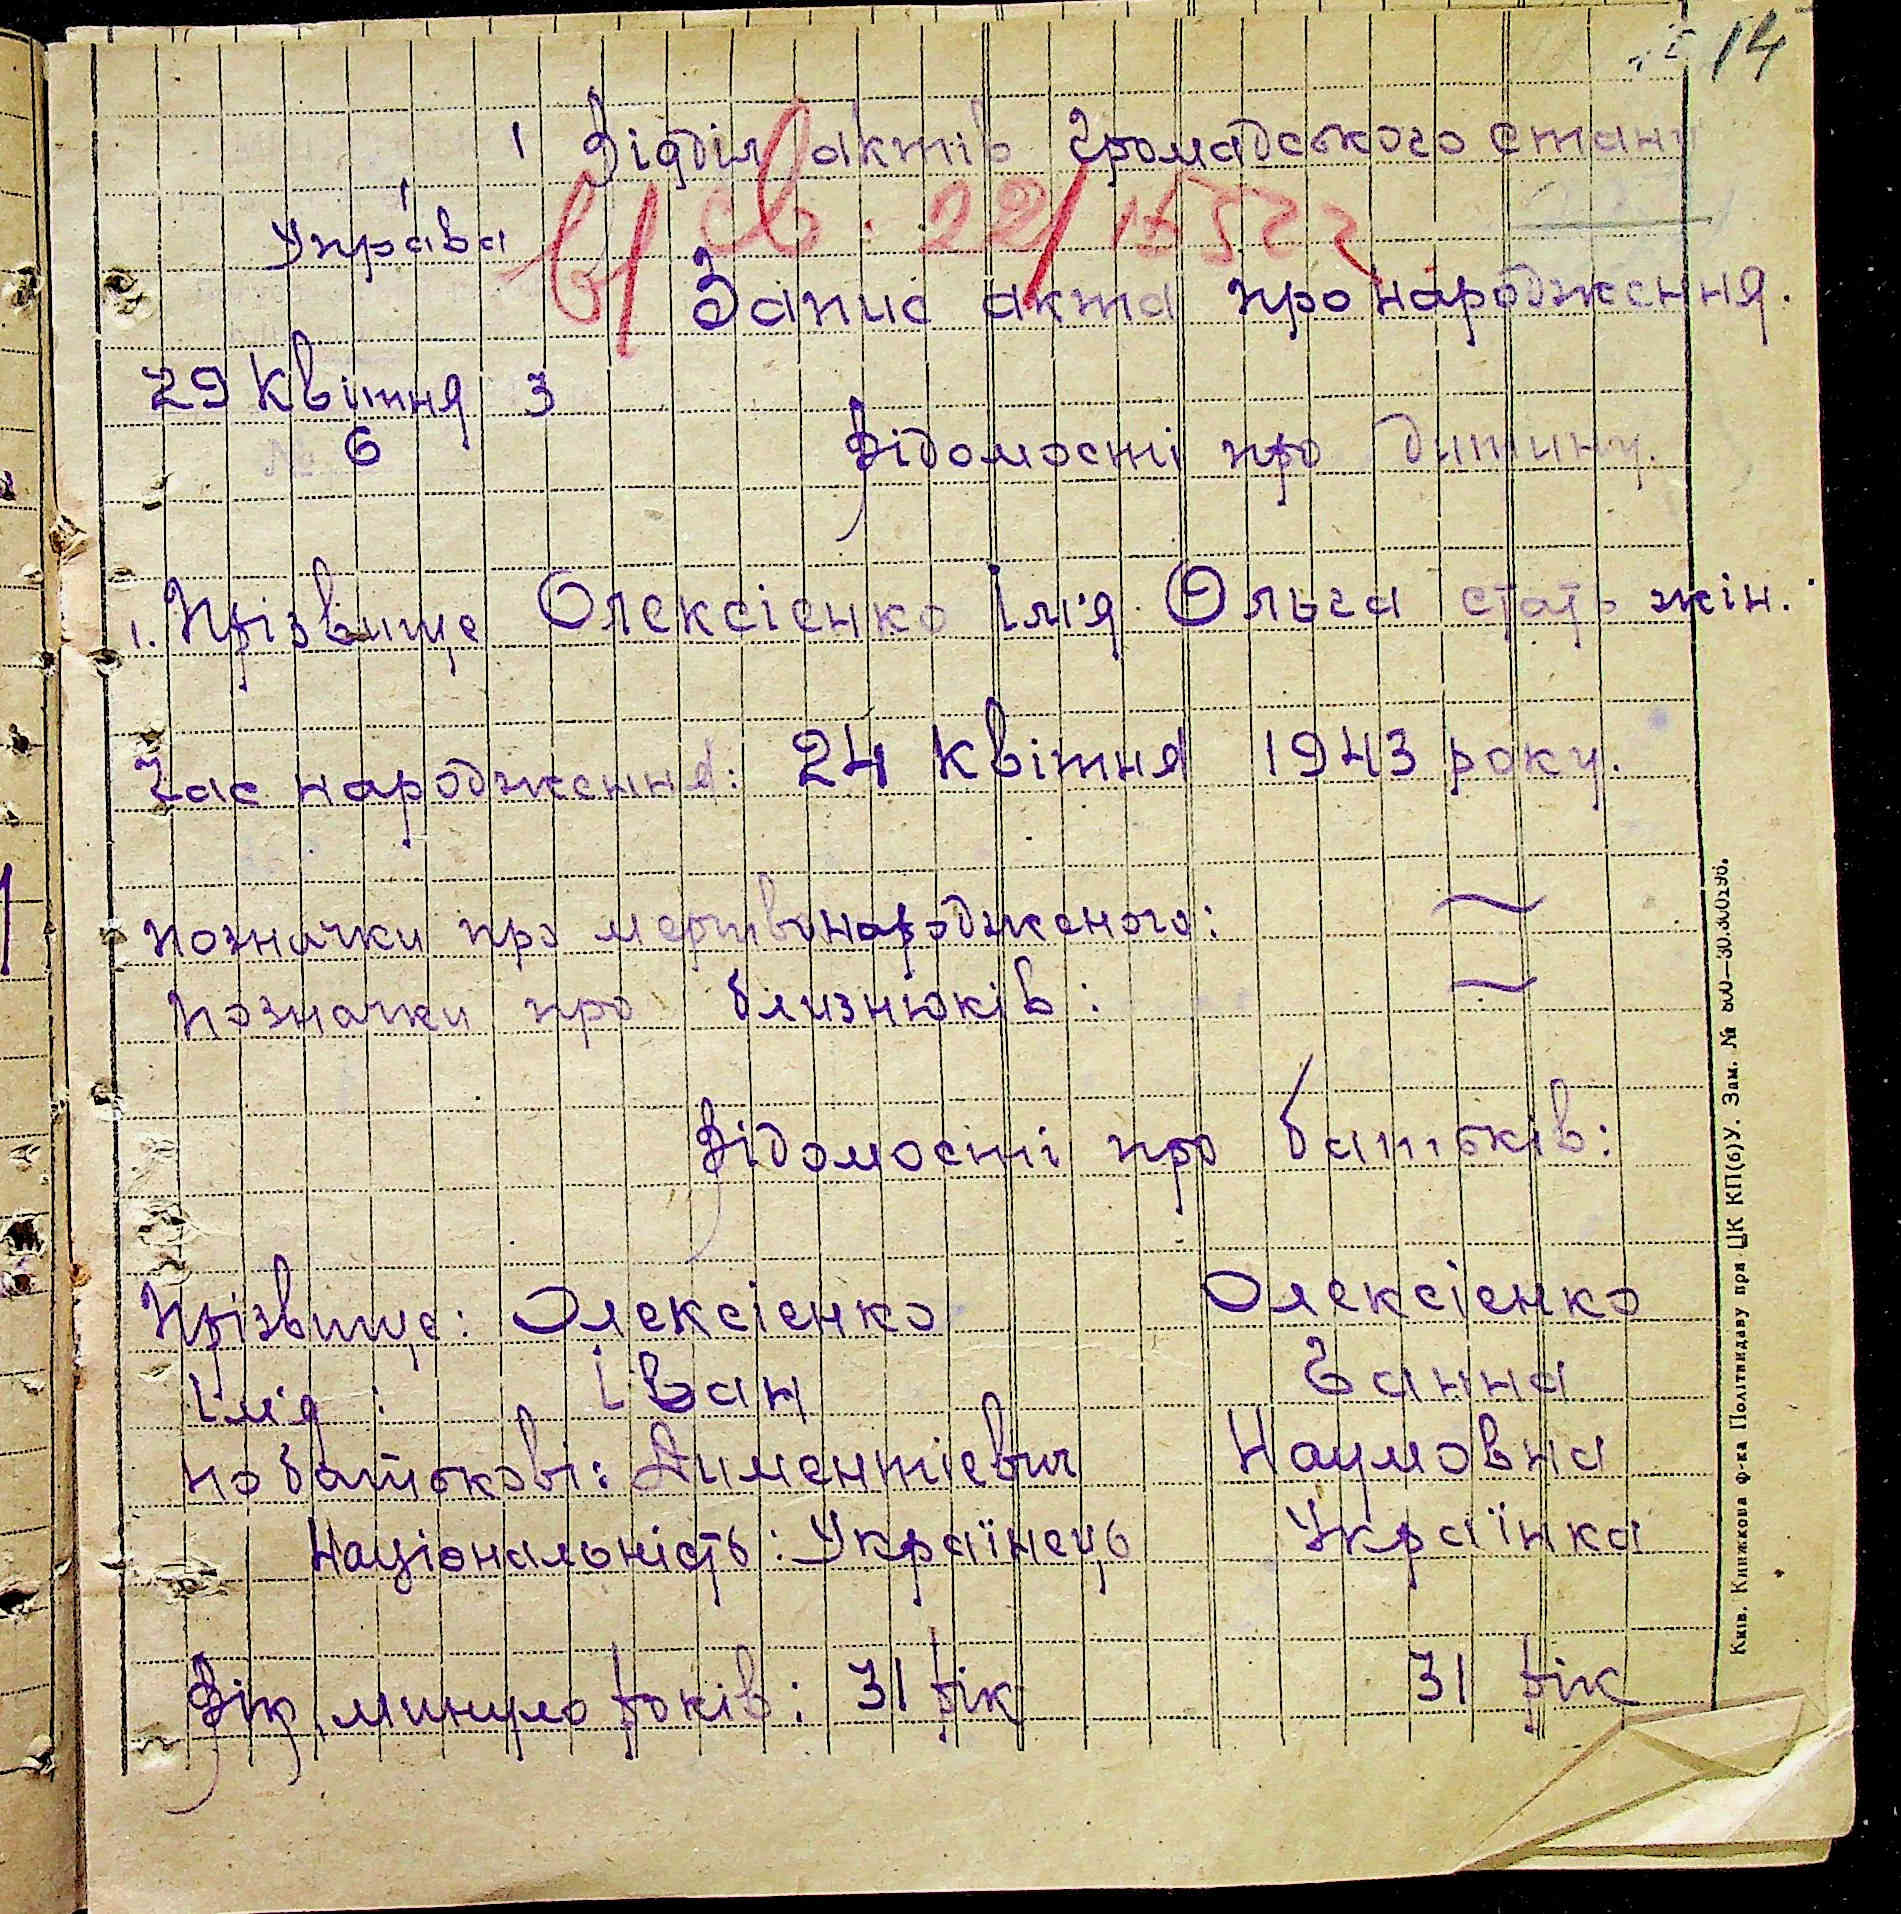 14
Відділ актів громадського стану
Управа
в/ св. 22/
Запис акта про народження.
29 квітня 3
№ 6
Відомості про дитину.
1. Прізвище Олексієнко Ім'я Ольга стать жін.
Час народження: 24 квітня 1943 року.
Позначки про мертвонародженого: ~
Позначки про близнюків: ~
Відомості про батьків:
Прізвище: Олексієнко Олексієнко
Ім'я: Іван Ганна
по батькові: Диментієвич Наумовна
Національність: Українець Українка
Вік, минуло років: 31 рік 31 рік
Київ. Книжкова ф-ка Політвидаву при ЦК КП(б)У. Зам. №